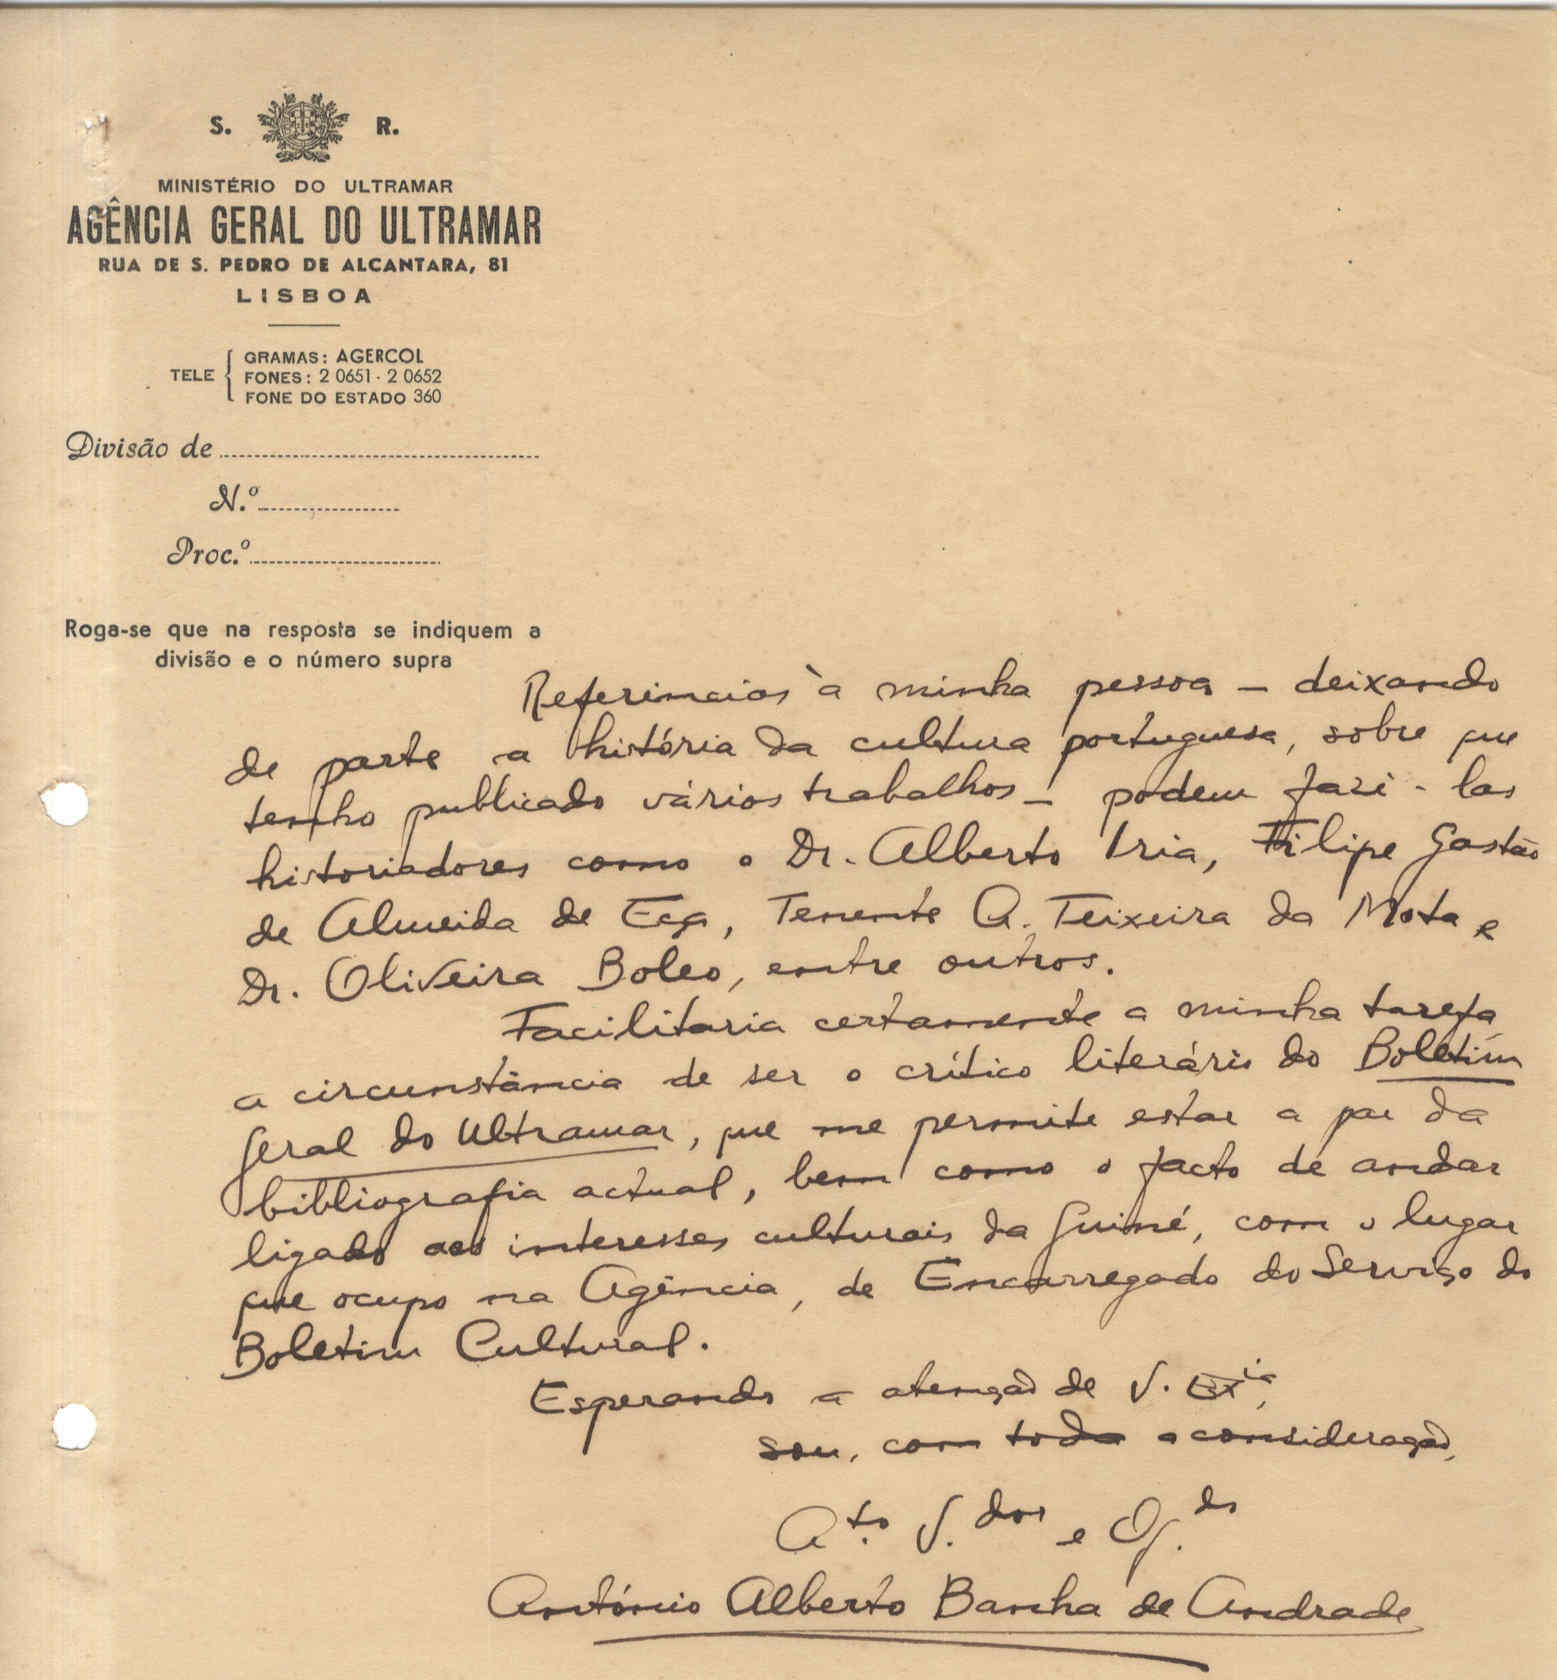 S. R.
MINISTÉRIO DO ULTRAMAR
AGÊNCIA GERAL DO ULTRAMAR
RUA DE S. PEDRO DE ALCANTARA, 81
LISBOA
TELE { GRAMAS: AGERCOL
FONES: 2 0651 - 2 0652
FONE DO ESTADO 360
Divisão de
N.º
Proc.º
Roga-se que na resposta se indiquem a
divisão e o número supra
Referências à minha pessoa — deixando
de parte a história da cultura portuguesa, sobre que
tenho publicado vários trabalhos — podem fazê-las
historiadores como o Dr. Alberto Iria, Filipe Gastão
de Almeida de Eça, Tenente A. Teixeira da Mota e
Dr. Oliveira Boleo, entre outros.
Facilitaria certamente a minha tarefa
a circunstância de ser o crítico literário do Boletim
Geral do Ultramar, que me permite estar a par da
bibliografia actual, bem como o facto de andar
ligado aos interesses culturais da Guiné, com o lugar
que ocupo na Agência, de Encarregado do Serviço do
Boletim Cultural.
Esperando a atenção de V. Exia,
sou, com toda a consideração,
A.to V.dor e O.do
António Alberto Banha de Andrade